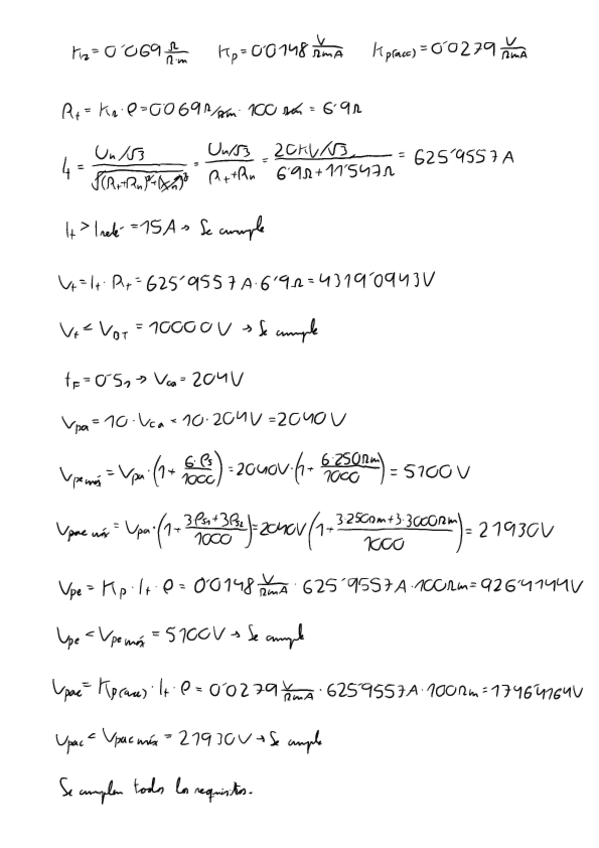 Kr = 0'069 Ω/Ω·m   Kp = 0'0148 V/ΩmA   Kp(acc) = 0'0279 V/ΩmA
Rt = Kr · ρ = 0'069 Ω/Ωm · 100 Ωm = 6'9 Ω
It = (Un/√3)/√((Rt+Rn)²+(Xn)²) = (Un/√3)/(Rt+Rn) = (20KV/√3)/(6'9Ω+11'547Ω) = 625'9557A
It > Irelé = 15A → Se cumple
Vt = It · Rt = 625'9557A · 6'9Ω = 4319'0943V
Vt < VBT = 10000V → Se cumple
tF = 0'5s → Vca = 204V
Vpa = 10 · Vca = 10 · 204V = 2040V
Vpe máx = Vpa · (1 + 6·ρs/1000) = 2040V · (1 + 6·250Ωm/1000) = 5100V
Vpac máx = Vpa · (1 + (3ρs1+3ρs2)/1000) = 2040V (1 + (3·250Ωm+3·3000Ωm)/1000) = 21930V
Vpe = Kp · It · ρ = 0'0148 V/ΩmA · 625'9557A · 100Ωm = 926'4144V
Vpe < Vpe máx = 5100V → Se cumple
Vpac = Kp(acc) · It · ρ = 0'0279 V/ΩmA · 625'9557A · 100Ωm = 1746'4164V
Vpac < Vpac máx = 21930V → Se cumple
Se cumplen todos los requisitos.